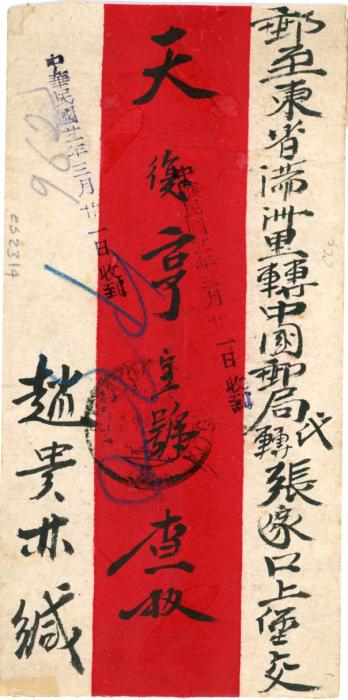 郵至東省滿洲里轉中國郵局代轉張家口上堡交
天復亨寶號查收
中華民國廿一年三月廿一日收到
中華民國廿一年三月廿一日收到
趙貴林緘
es2314